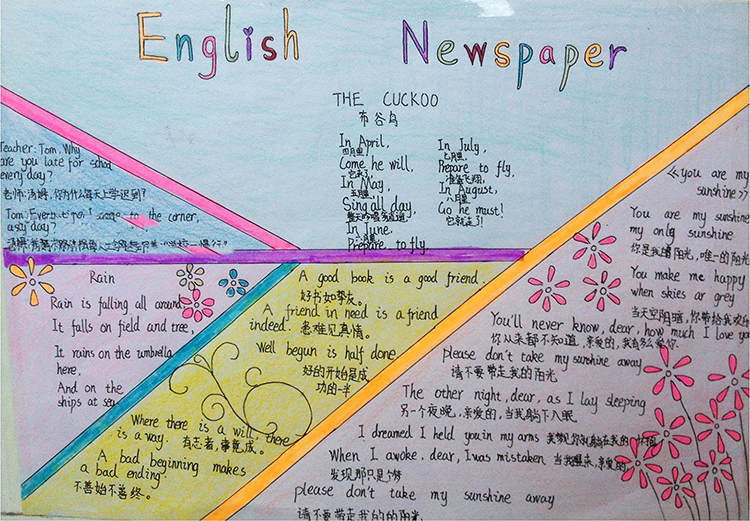 English Newspaper
THE CUCKOO
布谷鸟
In April,
四月里,
Come he will,
它来了,
In May,
五月里,
Sing all day,
整天吟唱多逍遥,
In June,
六月里
Prepare to fly.
In July,
七月里,
Prepare to fly,
准备飞翔,
In August,
八月里
Go he must!
它就走了!
Teacher: Tom, Why
are you late for school
every day?
老师:汤姆,你为什么每天上学迟到?
to the corner,
Rain
Rain is falling all around,
It falls on field and tree,
It rains on the umbrella
here,
And on the
ships at sea.
A good book is a good friend.
好书如挚友。
A friend in need is a friend
indeed. 患难见真情。
Well begun is half done
好的开始是成
功的一半
Where there is a will, there
is a way. 有志者,事竟成。
A bad beginning makes
a bad ending.
不善始不善终。
<<you are my
sunshine>>
You are my sunshine
my only sunshine
你是我的阳光,唯一的阳光
You make me happy
when skies ar grey
当天空阴暗,你带给我欢乐
You'll never know, dear, how much I love you
你从来都不知道,亲爱的,我有多么爱你.
please don't take my sunshine away
请不要带走我的阳光
The other night, dear, as I lay sleeping
另一个夜晚,亲爱的,当我躺下入眠
I dreamed I held you in my arms 我梦见你就躺在我的怀抱
When I awoke. dear, I was mistaken 当我醒来,亲爱的,
发现那只是个梦
please don't take my sunshine away
请不要带走我的的阳光.